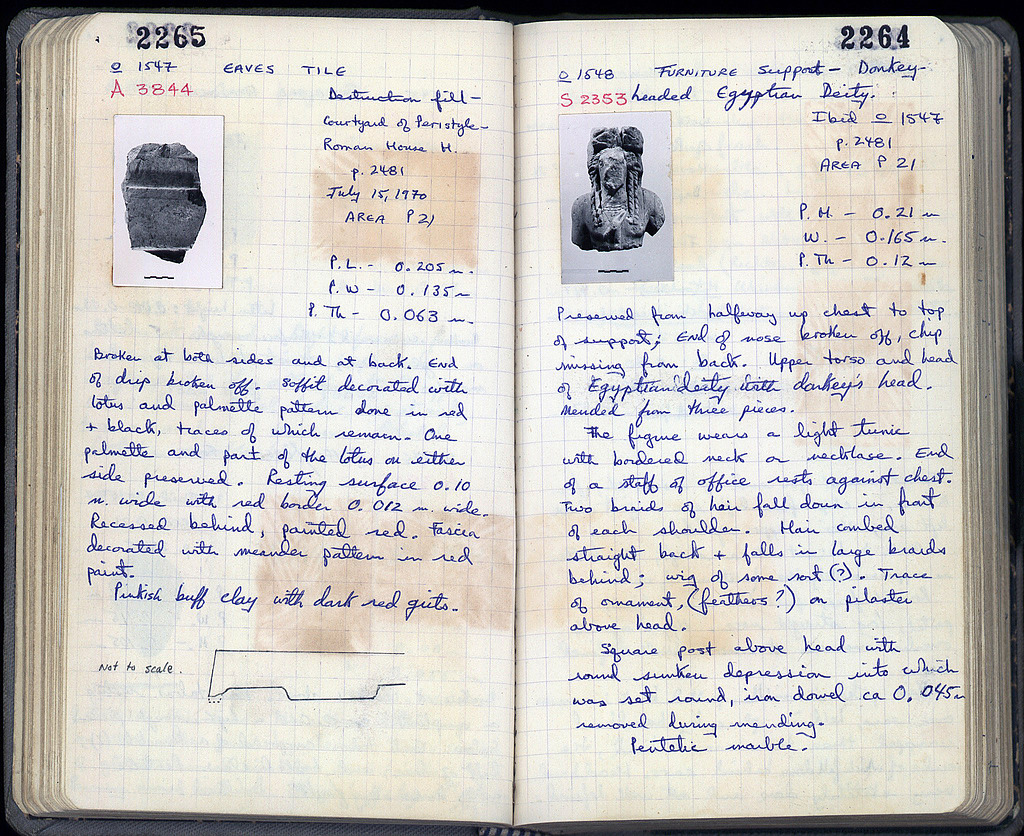 2265
o 1547 EAVES TILE
A 3844
Destruction fill -
Courtyard of Peristyle -
Roman House H.
p. 2481
July 15, 1970
AREA P 21
P.L. - 0.205 m.
P.W - 0.135 m
P. Th - 0.063 m.
Broken at both sides and at back. End
of drip broken off. Soffit decorated with
lotus and palmette pattern done in red
+ black, traces of which remain. One
palmette and part of the lotus on either
side preserved. Resting surface 0.10
m. wide with red border 0.012 m. wide.
Recessed behind, painted red. Fascia
decorated with meander pattern in red
paint.
Pinkish buff clay with dark red grits.
Not to scale.
2264
o 1548 FURNITURE Support - Donkey-
S 2353 headed Egyptian Deity.
Ibid o 1547
p. 2481
AREA P 21
P.H. - 0.21 m
W. - 0.165 m.
P. Th - 0.12 m
Preserved from halfway up chest to top
of support; End of nose broken off, chip
missing from back. Upper torso and head
of Egyptian deity with donkey's head.
Mended from three pieces.
The figure wears a light tunic
with bordered neck or necklace. End
of a staff of office rests against chest.
Two braids of hair fall down in front
of each shoulder. Hair combed
straight back + falls in large braids
behind; wig of some sort (?). Trace
of ornament, (feathers?) on pilaster
above head.
Square post above head with
round sunken depression into which
was set round, iron dowel ca 0.045 m
removed during mending.
Pentelic marble.